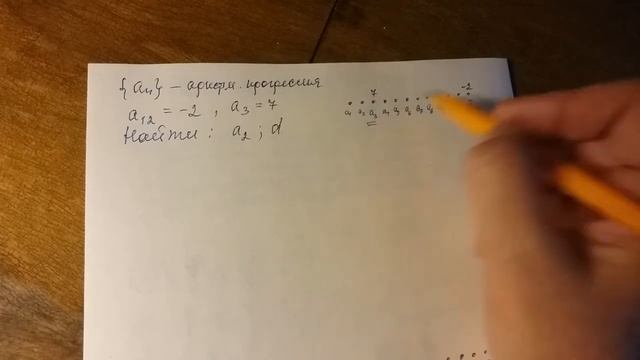 {aₙ} – арифм. прогрессия
a₁₂ = -2 , a₃ = 7
Найти : a₂ ; d
7 -2
a₁ a₂ a₃ a₄ a₅ a₆ a₇ a₈